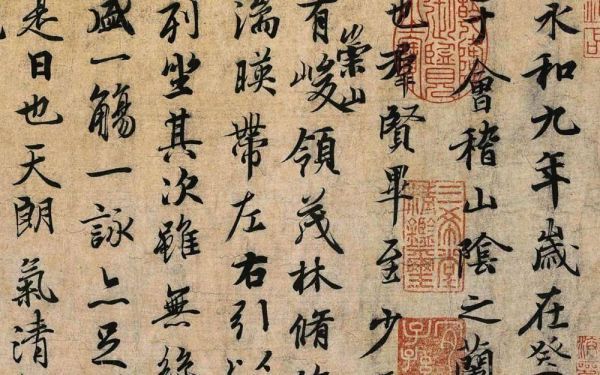 永和九年歲在癸
于會稽山陰之蘭
也羣賢畢至少
有崇山峻領茂林脩
湍暎帶左右引以
列坐其次雖無絲
盛一觴一詠亦足
是日也天朗氣清
三希堂
精鑑璽